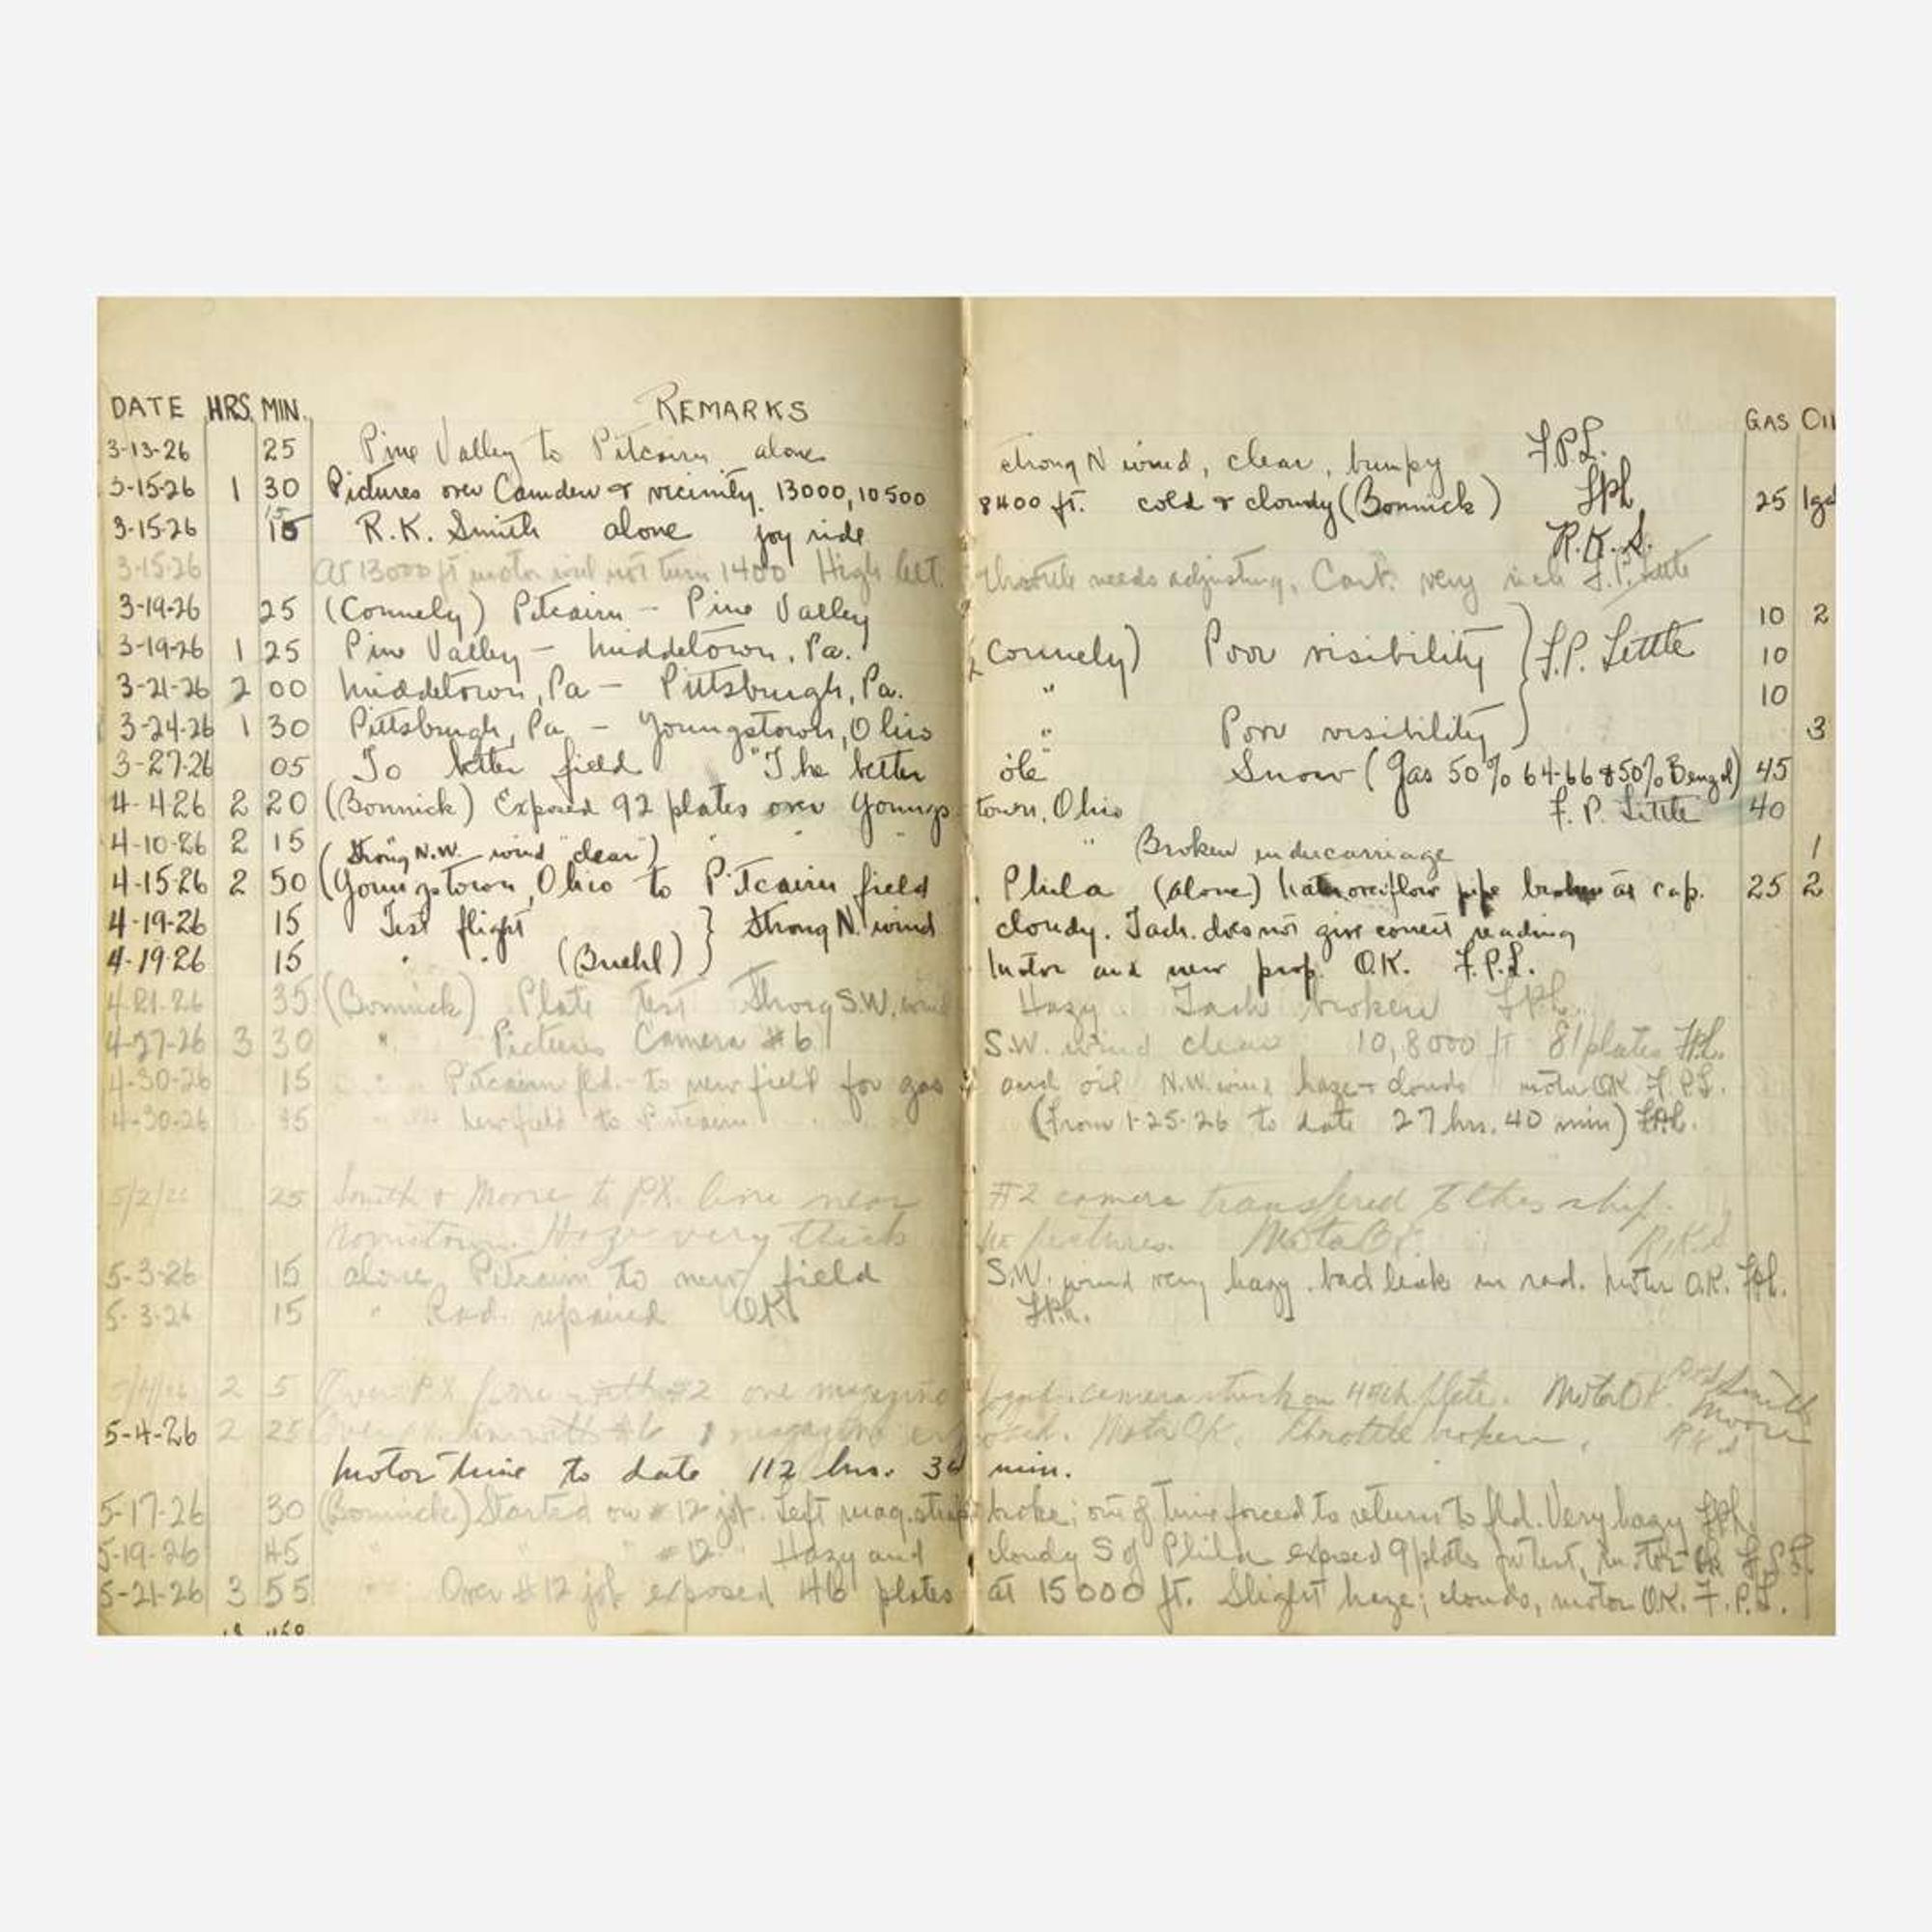 DATE HRS. MIN. REMARKS GAS OIL
3-13-26 25 Pine Valley to Pitcairn alone strong N wind, clear, bumpy F.P.L.
3-15-26 1 30 Pictures over Camden & vicinity. 13000, 10500 8400 ft. cold & cloudy (Bonnick) FPL 25 1gal
3-15-26 15 R.K. Smith alone joy ride R.K.S.
3-15-26 At 13000 ft motor will not turn 1400 High alt. throttle needs adjusting. Carb. very rich F.P. Little
3-19-26 25 (Connely) Pitcairn - Pine Valley 10 2
3-19-26 1 25 Pine Valley - Middletown, Pa. (Connely) Poor visibility F.P. Little 10
3-21-26 2 00 Middletown, Pa - Pittsburgh, Pa. " 10
3-24-26 1 30 Pittsburgh, Pa - Youngstown, Ohio " Poor visibility 3
3-27-26 05 To better field "The better 'ole" Snow (Gas 50% 64-66 & 50% Benzol) 45
4-4-26 2 20 (Bonnick) Exposed 92 plates over Youngstown, Ohio F. P. Little 40
4-10-26 2 15 (Strong N.W. wind "clear") " " " (Broken undercarriage 1
4-15-26 2 50 (Youngstown, Ohio to Pitcairn field, Phila (alone) overflow pipe broken at cap. 25 2
4-19-26 15 Test flight } Strong N. wind cloudy. Tach. does not give correct reading
4-19-26 15 " " (Buehl) } Motor and new prop. O.K. F.P.L.
4-21-26 35 (Bonnick) Plate test Strong S.W. wind Hazy. Tach broken FPL.
4-27-26 3 30 " Pictures Camera #6 S.W. wind clear 10,8000 ft 81 plates FPL.
4-30-26 15 " Pitcairn fld. - to new field for gas and oil N.W. wind haze & clouds motor OK F.P.L.
4-30-26 15 " new field to Pitcairn (From 1-25-26 to date 27 hrs. 40 min) FPL.
5/2/26 25 Smith & Moore to P.X. line near #2 camera transfered to other ship.
Norristown. Haze very thick no pictures. Motor OK. R.K.S
5-3-26 15 alone Pitcairn to new field S.W. wind very hazy. bad leak in rad. Motor O.K. FPL.
5-3-26 15 " Rad. repaired OK FPL.
2 5 Over P.X. line with #2 one magazine camera stuck on 45th plate. Motor OK. Smith Moore
5-4-26 2 25 Over P.X. line with #6 1 magazine exposed. Motor OK. Throttle broken. RKS
Motor time to date 112 hrs. 30 min.
5-17-26 30 (Bonnick) Started on #12 job. Left mag. broke; out of time forced to return to fld. Very hazy FPL.
5-19-26 45 " " " #12 " Hazy and cloudy S of Phila exposed 9 plates for test, motor OK F.P.L
5-21-26 3 55 " Over #12 job exposed 46 plates at 15000 ft. Slight haze; clouds, motor O.K. F.P.L.